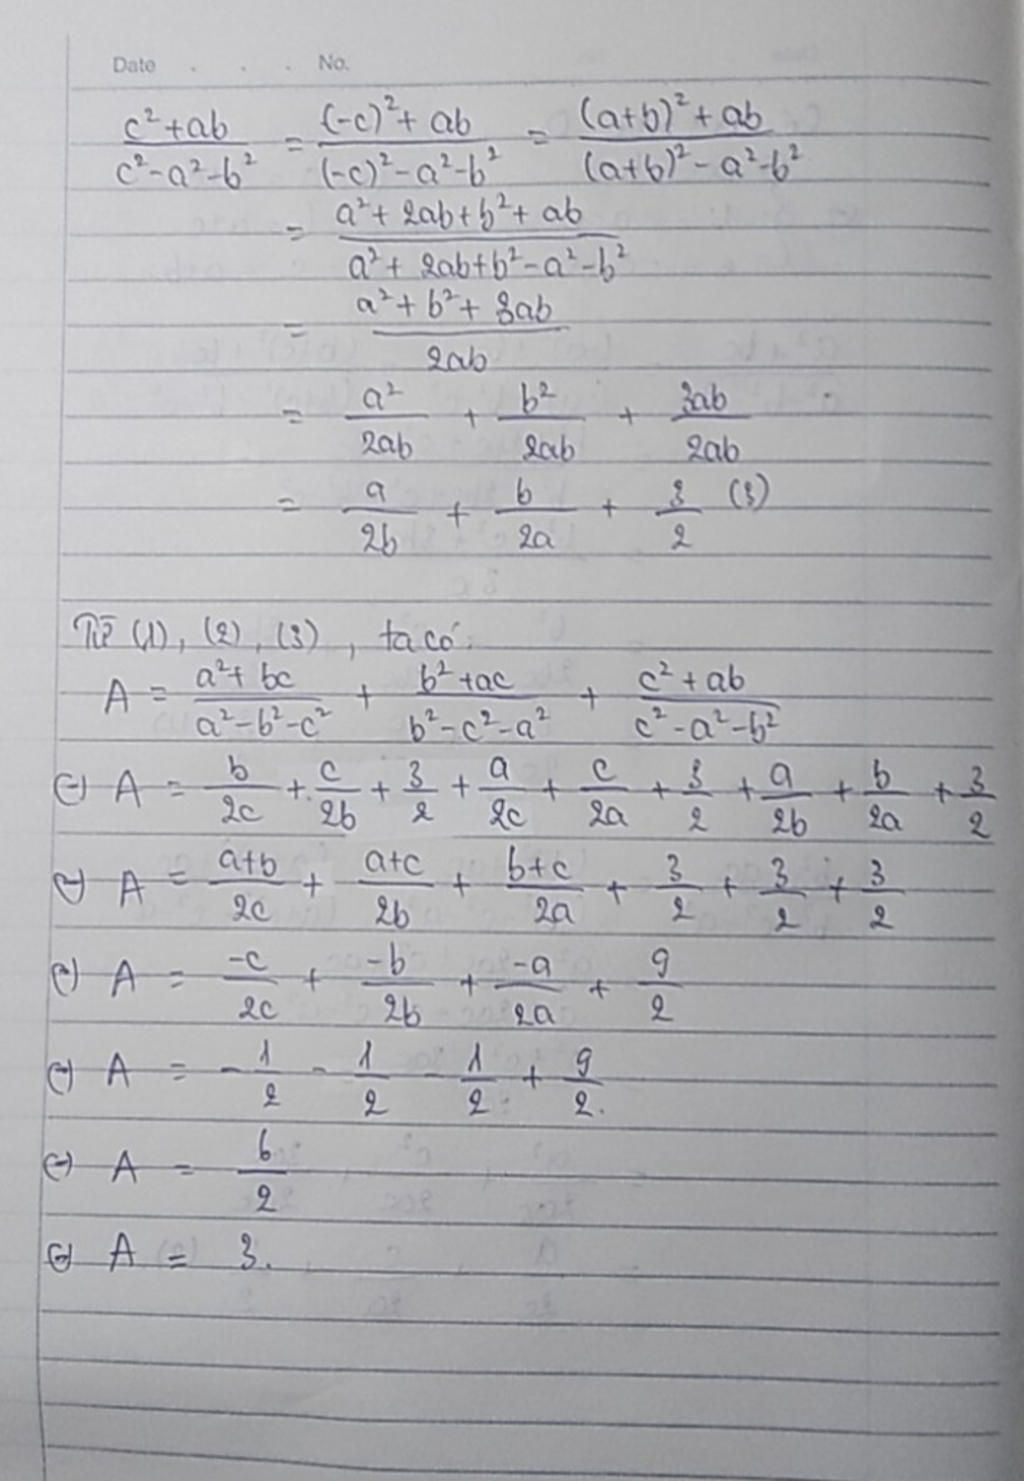 Date . . . No.
c²+ab / c²-a²-b² = (-c)²+ab / (-c)²-a²-b² = (a+b)²+ab / (a+b)²-a²-b²
= a²+2ab+b²+ab / a²+2ab+b²-a²-b²
= a²+b²+3ab / 2ab
= a²/2ab + b²/2ab + 3ab/2ab
= a/2b + b/2a + 3/2 (3)
Từ (1), (2), (3), ta có:
A = a²+bc / a²-b²-c² + b²+ac / b²-c²-a² + c²+ab / c²-a²-b²
(=) A = b/2c + c/2b + 3/2 + a/2c + c/2a + 3/2 + a/2b + b/2a + 3/2
(=) A = a+b/2c + a+c/2b + b+c/2a + 3/2 + 3/2 + 3/2
(=) A = -c/2c + -b/2b + -a/2a + 9/2
(=) A = -1/2 - 1/2 - 1/2 + 9/2.
(=) A = 6/2
(=) A = 3.